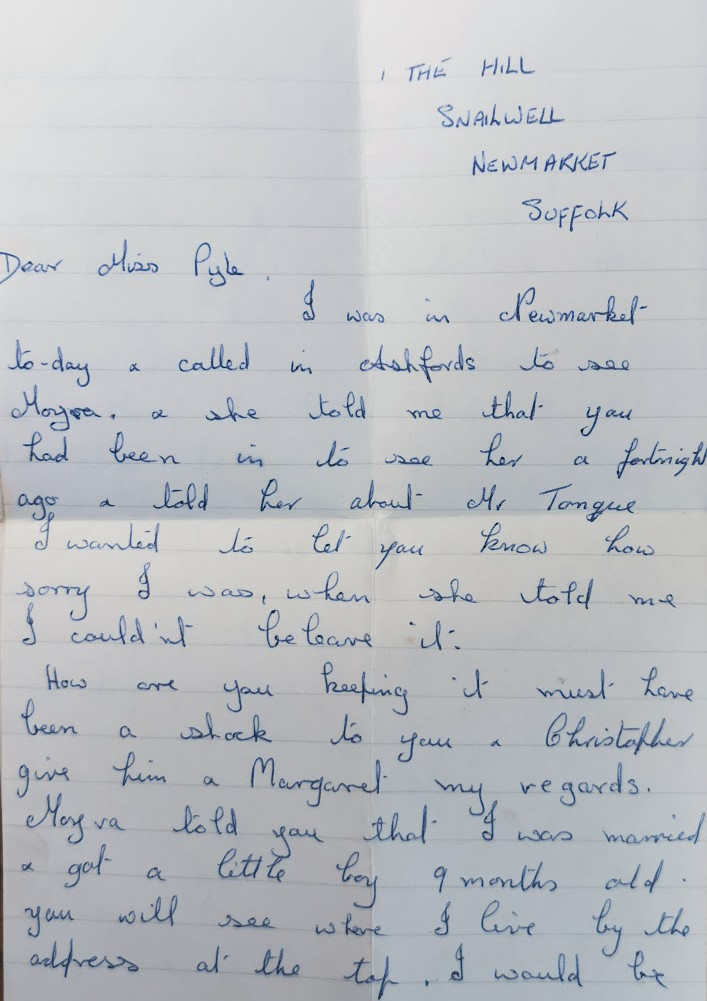 1 THE HILL
SNAILWELL
NEWMARKET
SUFFOLK
Dear Miss Pyle.
I was in Newmarket
to-day & called in Ashfords to see
Moyra. & she told me that you
had been in to see her a fortnight
ago & told her about Mr Tongue
I wanted to let you know how
sorry I was, when she told me
I could'nt beleave it.
How are you keeping it must have
been a shock to you & Christopher
give him & Margaret my regards.
Moyra told you that I was married
& got a little boy 9 months old.
you will see where I live by the
address at the top. I would be